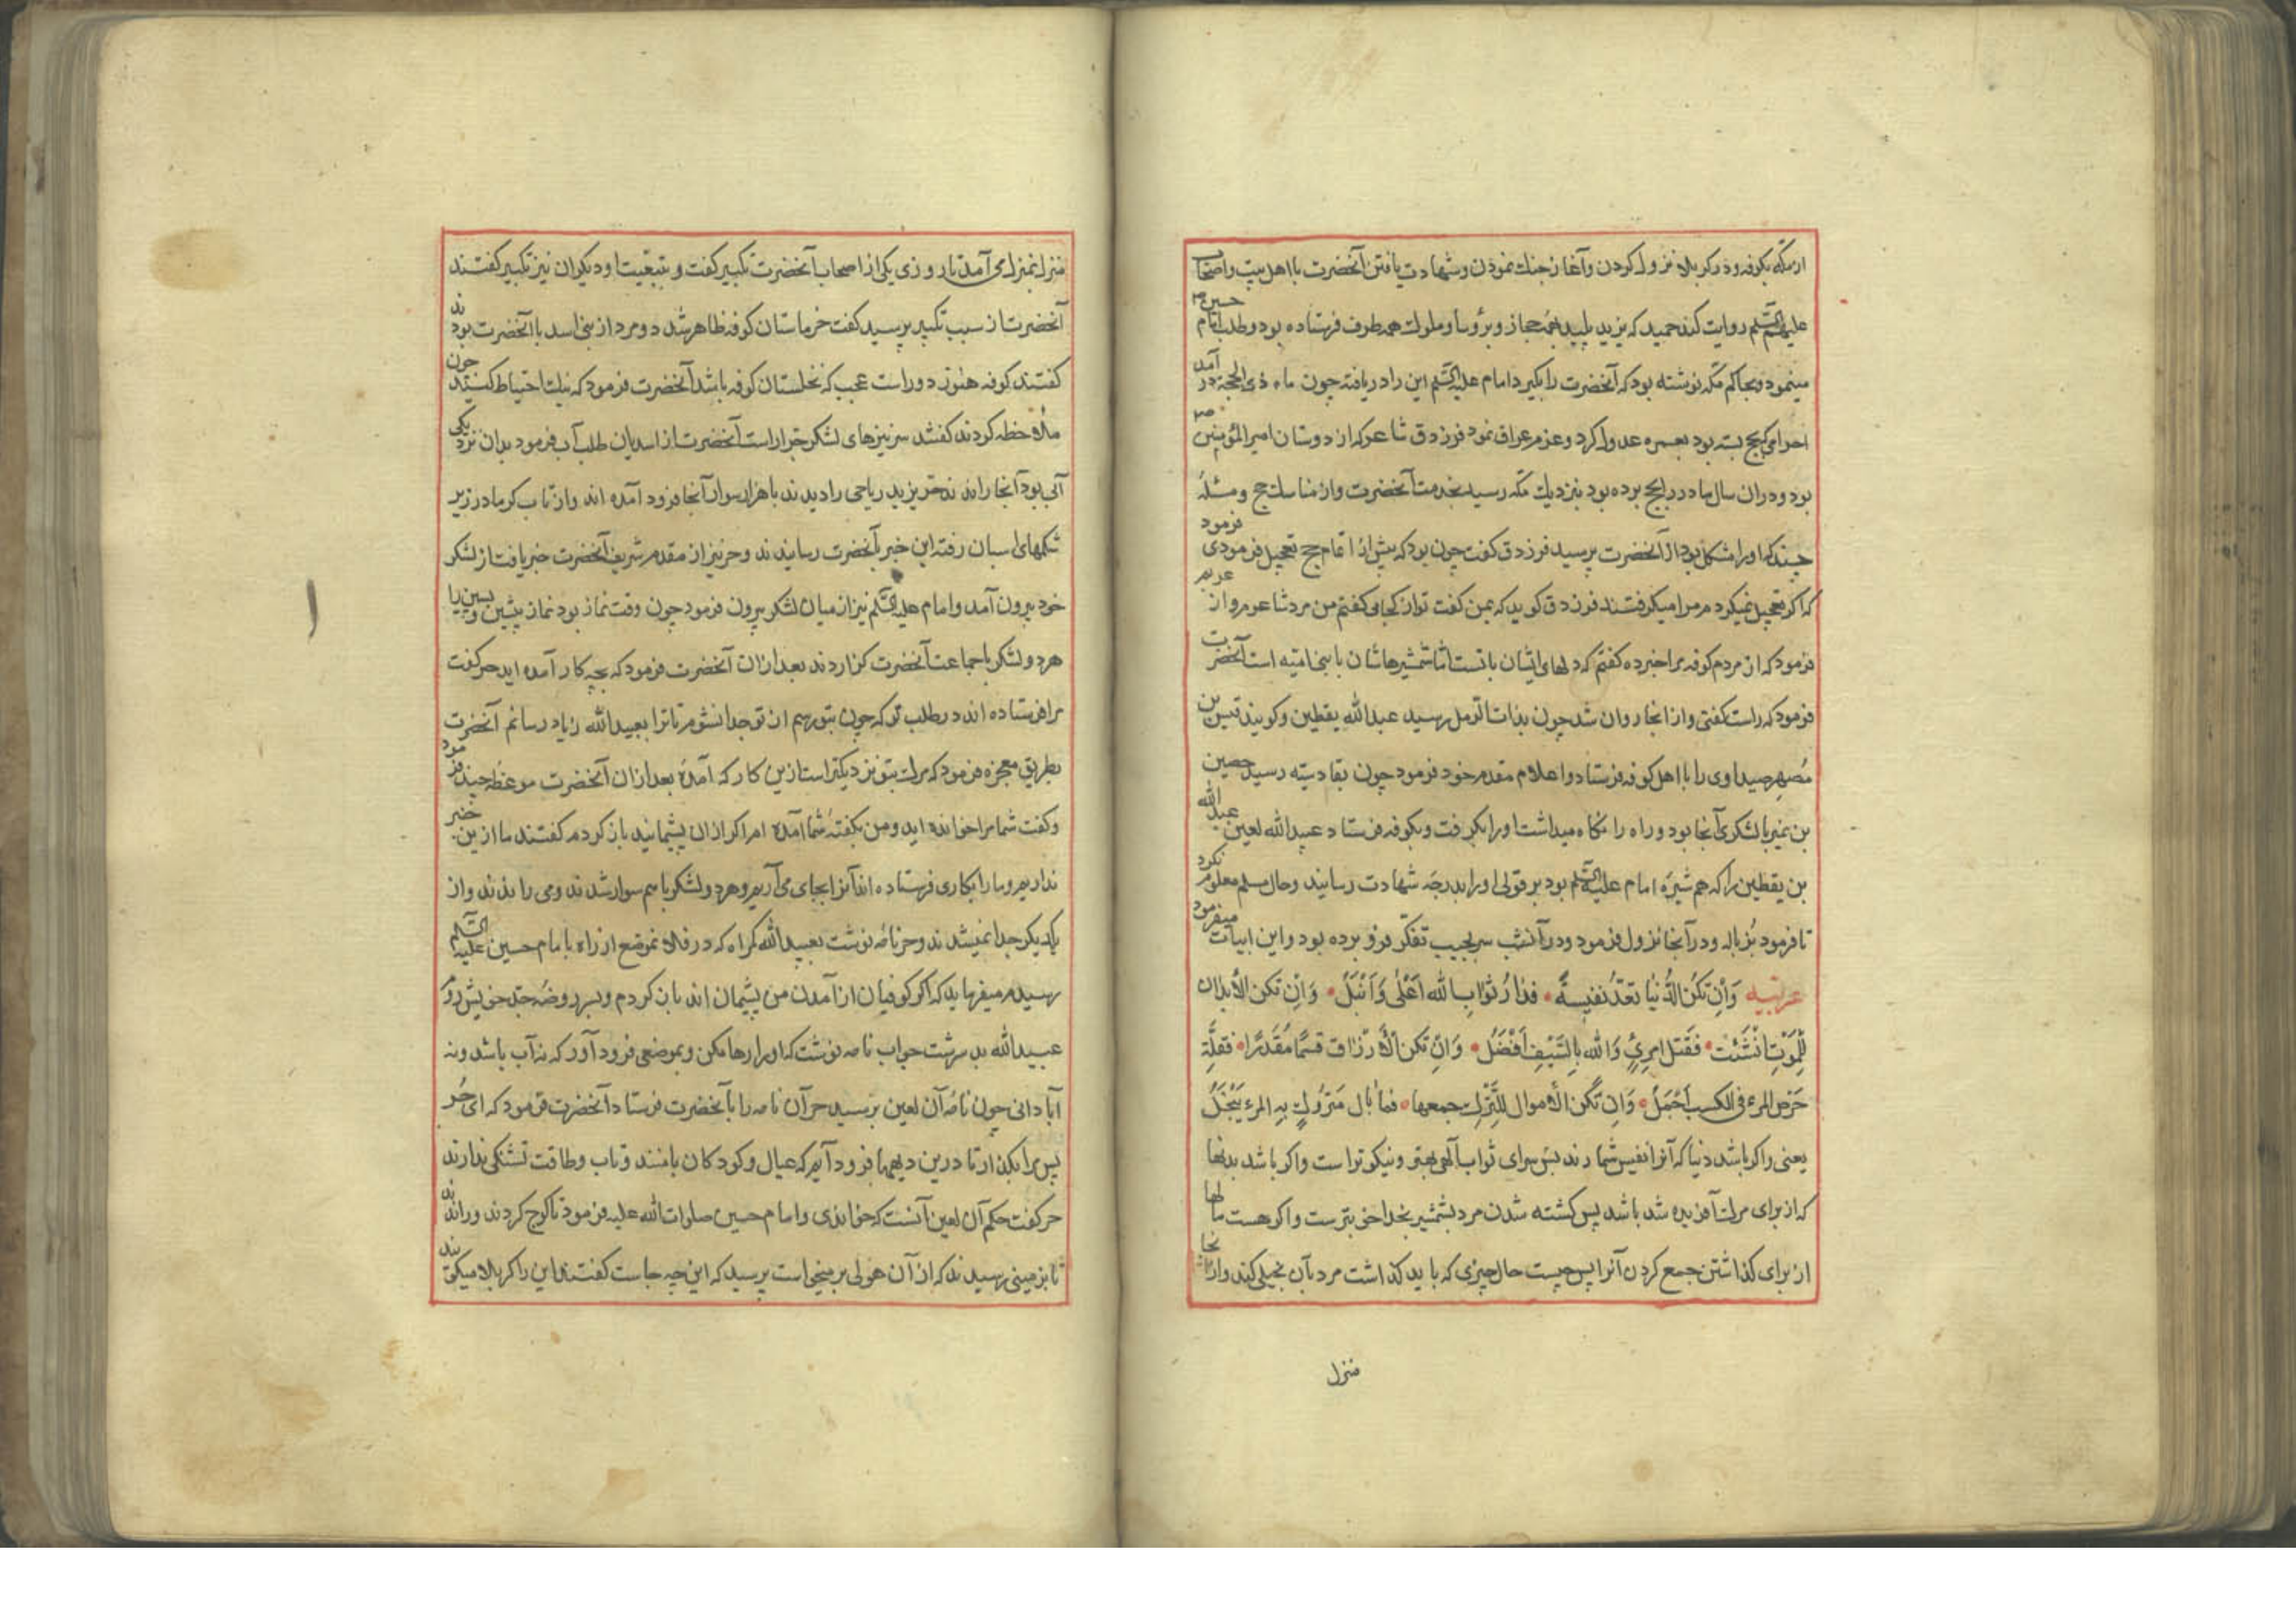 از مکه بکوفه و در کربلا نزول کردن و آغاز جنك نمودن و شهادت یافتن آنحضرت با اهل بیت و اصحاب
علیهم السلم روایت کند حمید که یزید پلید بحجاز و برؤسا و ملوك همه طرف فرستاده بود و طلب امام حسین
مینمود و بحاکم مکه نوشته بود که آنحضرت را بکیرد امام علیه السلم این را دریافته چون ماه ذی الحجة در آمد
احرامی که بحج بسته بود بعمره عدول کرد و عزم عراق نمود فرزدق شاعر که از دوستان امیر المؤمنین
بود و در ان سال مادر را بحج برده بود بنزدیك مکه رسید بخدمت آنحضرت و از مناسك حج و مسئلهٔ
چند که او را مشکل بود از آنحضرت پرسید فرزدق کفت چون بود که پیش از اتمام حج تعجیل فرمودی فرمود
که اکر تعجیل نمیکردم مرا میکرفتند فرزدق کوید که بمن کفت تو از کجایی کفتم من مرد شاعرم و از عربم
فرمود که از مردم کوفه مرا خبر ده کفتم که دلهای ایشان با تست اما شمشیرهاشان با بنی امیه است آنحضرت
فرمود که راست کفتی و از انجا روان شد چون بذات الرمل رسید عبدالله یقطین و کویند قیس بن
مصهر صیداوی را با اهل کوفه فرستاد و اعلام مقدم خود فرمود چون بقادسیه رسید حصین
بن نمیر با لشکری آنجا بود و راه را نکاه میداشت او را بکرفت و بکوفه فرستاد عبیدالله لعین عبد الله
بن یقطین را که هم شیرهٔ امام علیه السلم بود بر قولی او را بدرجه شهادت رسانید و حال مسلم معلوم نکرد
تا فرمود بزباله و در آنجا نزول فرمود و در آنشب سر بجیب تفکر فرو برده بود و این ابیات میفرمود
عربیه وَاِن تَکُن الدُّنیَا تُعَدُّ نَفیسةً فَدارُ ثَوابِ الله اَعْلٰی وَاَنْبَلُ وَاِن تَکن الأبدان
لِلْمَوْتِ اُنْشِئَت فَقَتل امرِیٍٔ وَالله بِالسَّیْفِ اَفْضَلُ وَاِنْ تَکن الأرْزاق قسمًا مُقَدَّرًا فقلّة
حَرْصِ المرءِ فی الکسبِ اَجْمَلُ وَاِن تَکُن الأموال للتَّرْكِ جمعها فما بال مَتروُكٍ بِهِ المرء یَبْخَلُ
یعنی اکر باشد دنیا که آنرا نفیس شمارند پس سرای ثواب الهی بهتر و نیکوتر است و اکر باشد بدنها
که از برای مرك آفریده شد باشد پس کشته شدن مرد بشمشیر بخدا خوبترست و اکر هست مالها
از برای کذاشتن جمع کردن آنرا پس چیست حال چیزی که باید کذاشت مرد بآن بخیلی کند و از انجا
منزل
منزل بمنزل می آمد تا روزی یکی از اصحاب آنحضرت تکبیر کفت و بتبعیت او دیکران نیز تکبیر کفتند
آنحضرت از سبب تکبیر پرسید کفت خرماستان کوفه ظاهر شد دو مرد از بنی اسد با آنحضرت بودند
کفتند کوفه هنوز دور است عجب که نخلستان کوفه باشد آنحضرت فرمود که نیك احتیاط کنید چون
ملاحظه کردند کفتند سر نیزهای لشکر جرار است آنحضرت از اسدیان طلب آب فرمود بدان نزدیکی
آبی بود آنجا راندند حر یزید ریاحی را دیدند با هزار سوار آنجا فرود آمده اند و از تاب کرما در زیر
شکمهای اسبان رفته این خبر بآنحضرت رسانیدند و حر نیز از مقدم شریف آنحضرت خبر یافت از لشکر
خود بیرون آمد و امام علیه السلم نیز از میان لشکر بیرون فرمود چون وقت نماز بود نماز پیشین و پسین را
هر دو لشکر با جماعت آنحضرت کزاردند بعد از ان آنحضرت فرمود که بچه کار آمده اید حر کفت
مرا فرستاده اند در طلب تو که چون بتو رسم از تو جدا نشوم تا ترا بعبید الله زیاد رسانم آنحضرت
بطریق معجزه فرمود که مرك بتو نزدیکتر است ازین کار که آمدهٔ بعد از ان آنحضرت موعظهٔ چند فرمود
و کفت شما مرا خوانده اید و من بکفتهٔ شما آمده ام اکر از ان پشیمانید باز کردم کفتند ما ازین خبر
نداریم و ما را بکاری فرستاده اند آنرا بجای می آریم و هر دو لشکر با هم سوار شدند و می راندند و از
یکدیکر جدا نمیشدند و حر نامه نوشت بعبید الله کمراه که در فلان موضع از راه بامام حسین علیه السلم
رسیدم میفرماید که اکر کوفیان از آمدن من پشیمان اند باز کردم و بسر روضهٔ جد خویش روم
عبیدالله بد سرشت جواب نامه نوشت که او را رها مکن و بموضعی فرود آور که نه آب باشد و نه
آبادانی چون نامهٔ آن لعین برسید حر آن نامه را بآنحضرت فرستاد آنحضرت فرمود که ای حر
پس مرا بکذار تا درین دیهها فرود آیم که عیال و کودکان با منند و تاب و طاقت تشنکی ندارند
حر کفت حکم آن لعین آنست که خواندی و امام حسین صلوات الله علیه فرمود تا کوچ کردند و راندند
تا بزمینی رسیدند که از آن هولی بر میخواست پرسید که این چه جاست کفتند این را کربلا میکویند